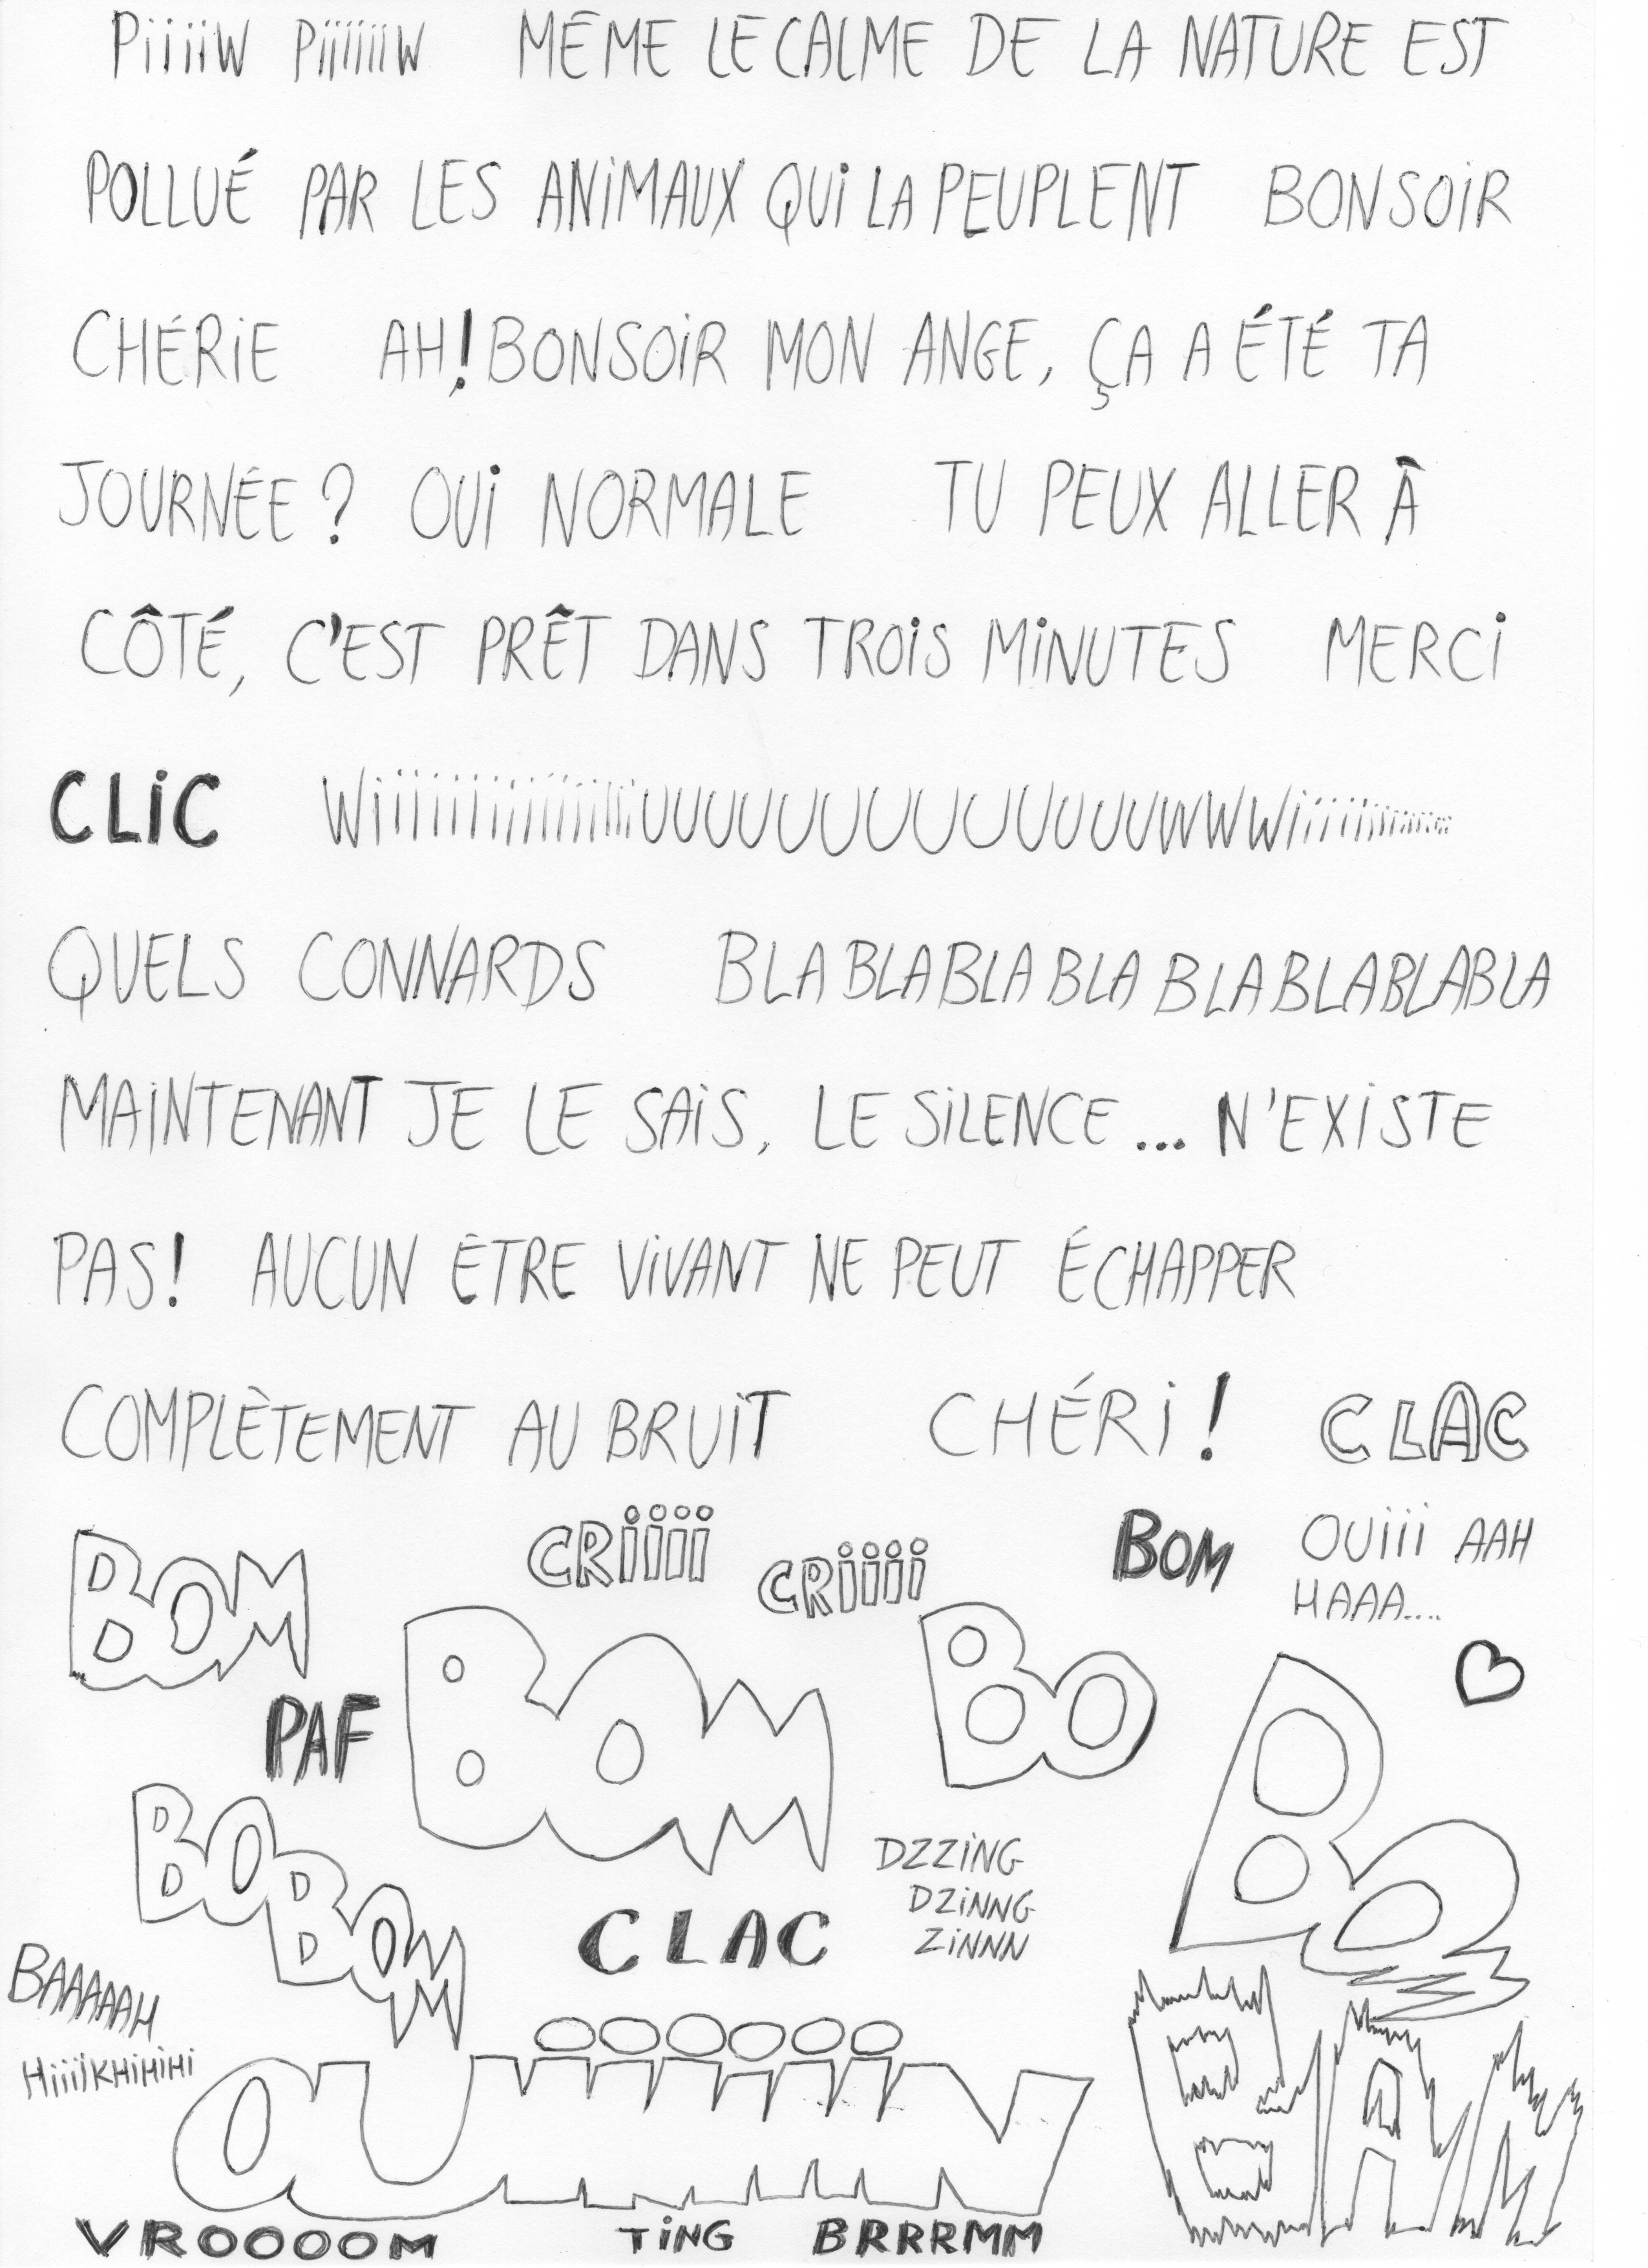 PiiiiW PiiiiiiW MÊME LE CALME DE LA NATURE EST
POLLUÉ PAR LES ANiMAUX QUi LA PEUPLENT BONSOiR
CHÉRiE AH! BONSOiR MON ANGE, ÇA A ÉTÉ TA
JOURNÉE ? OUi NORMALE TU PEUX ALLER À
CÔTÉ, C'EST PRÊT DANS TROiS MiNUTES MERCi
CLiC WiiiiiiiiiiiiiiiiUUUUUUUUUUUUUUWWWiiiiiiiiiiiiiii
QUELS CONNARDS BLA BLA BLA BLA BLA BLABLABLA
MAiNTENANT JE LE SAiS, LE SiLENCE... N'EXiSTE
PAS! AUCUN ÊTRE ViVANT NE PEUT ÉCHAPPER
COMPLÈTEMENT AU BRUiT CHÉRi ! CLAC
BOM CRiiii CRiiii BOM OUiii AAH
HAAA....
PAF BOM BO BO
BOBOM DZZiNG
DZiNNG
CLAC ZiNNN
BAAAAAH
HiiiiKHiHiHi OUiiiiiiN BAM
VROOOOM TiNG BRRRMM